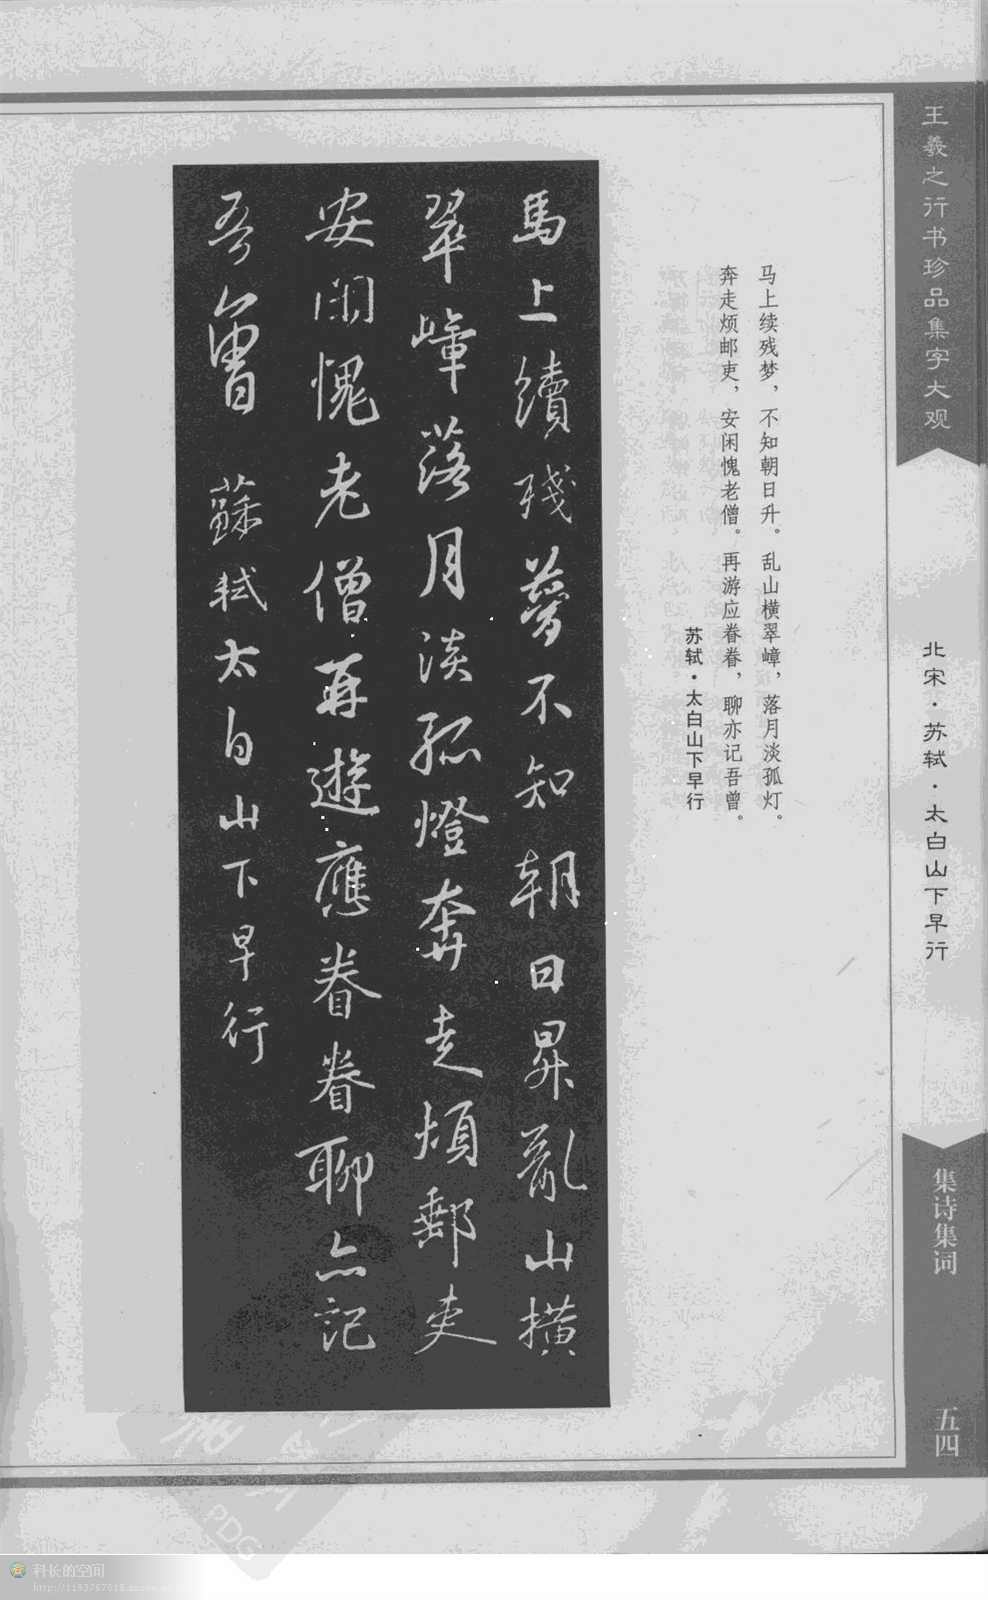 王羲之行书珍品集字大观
北宋·苏轼·太白山下早行
集诗集词
五四
马上续残梦，不知朝日升。乱山横翠嶂，落月淡孤灯。
奔走烦邮吏，安闲愧老僧。再游应眷眷，聊亦记吾曾。
苏轼·太白山下早行
馬上續殘夢不知朝日昇亂山橫
翠嶂落月淡孤燈奔走煩郵吏
安閑愧老僧再遊應眷眷聊亦記
吾曾 蘇軾太白山下早行
PDG
科长的空间